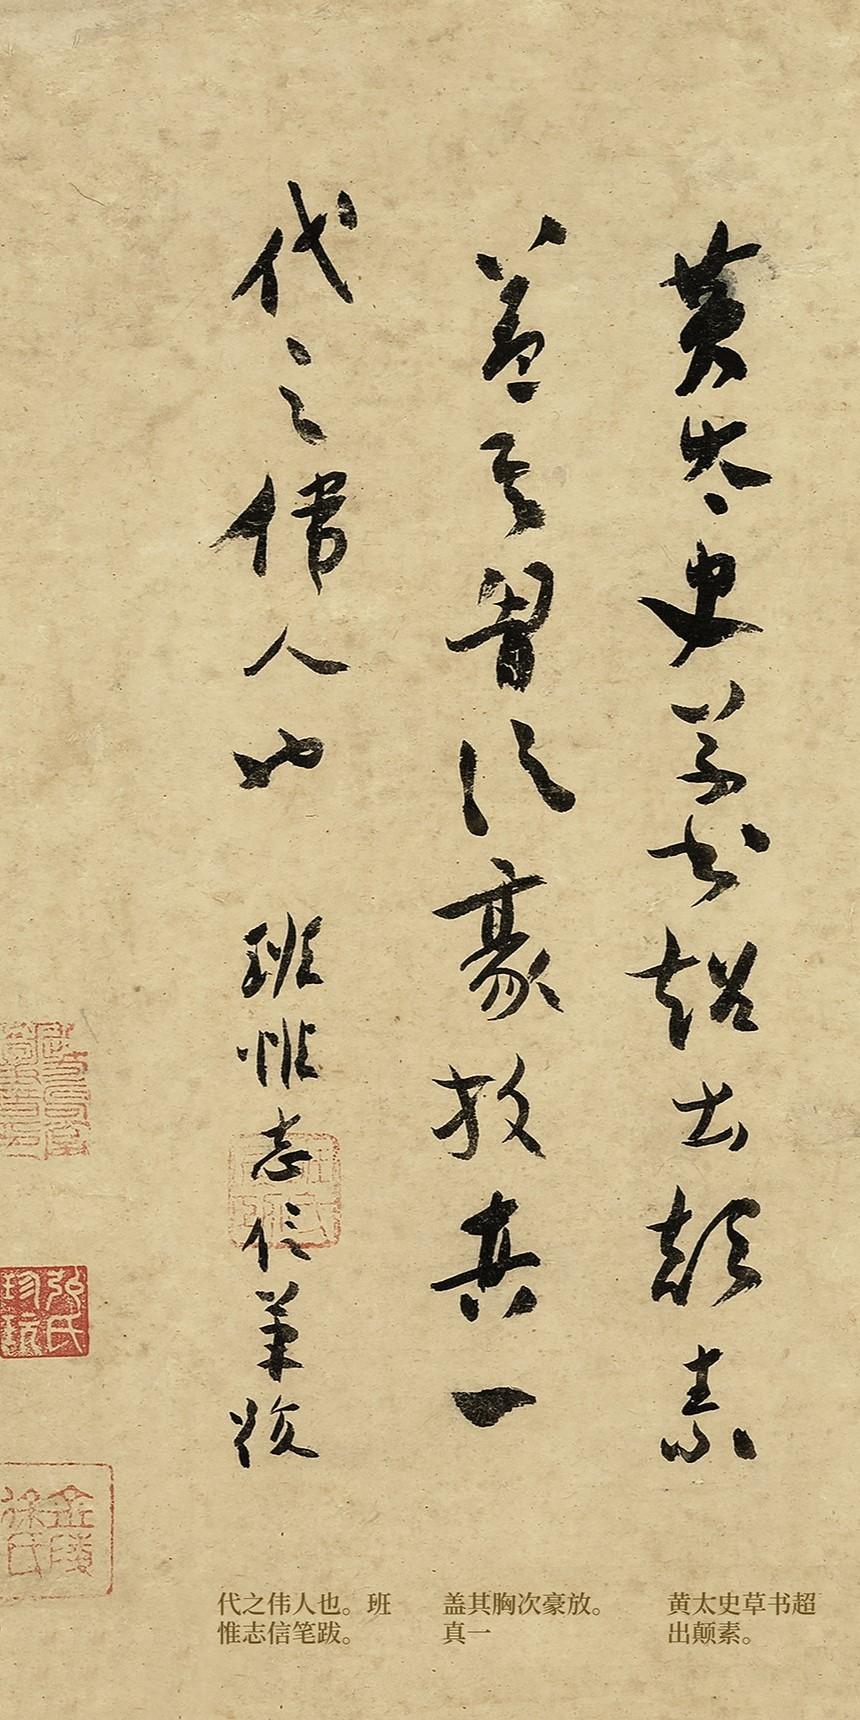 黄太史草书超出颠素
盖其胸次豪放真一
代之偉人也 班惟志信筆跋
班氏
弘氏珍玩
金陵徐氏
黄太史草书超
出颠素。
盖其胸次豪放。
真一
代之伟人也。班
惟志信笔跋。